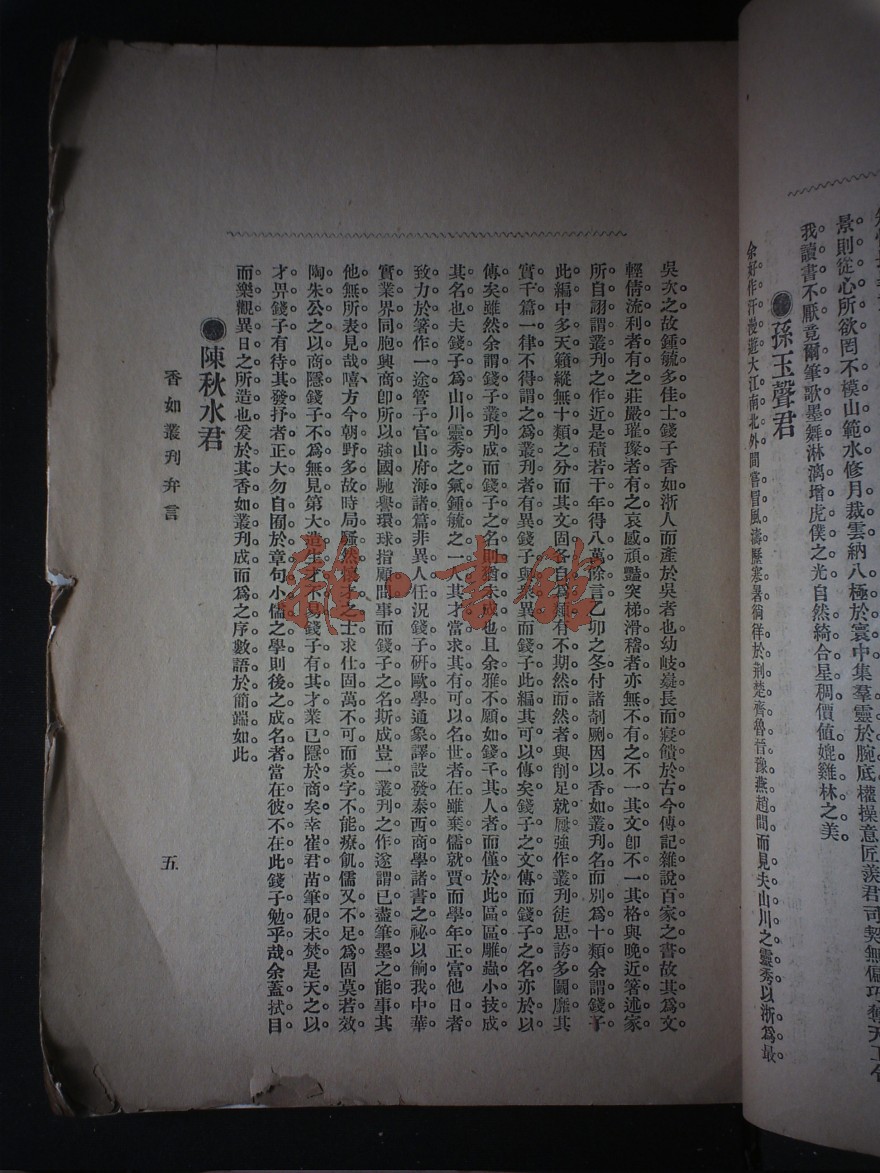 景則從心所欲罔不模山範水修月裁雲納八極於寰中集羣靈於腕底權操意匠羨君司契無偏巧奪天工令
我讀書不厭竟爾筆歌墨舞淋漓增虎僕之光自然綺合星稠價值媲雞林之美
孫玉聲君
余好作汗漫遊大江南北外間嘗冒風濤歷寒暑徜徉於荆楚齊魯晉豫燕趙間而見夫山川之靈秀以浙爲最
吳次之故鍾毓多佳士錢子香如浙人而產於吳者也幼岐嶷長而寢饋於古今傳記雜說百家之書故其爲文
輕倩流利者有之莊嚴璀璨者有之哀感頑豔突梯滑稽者亦無不有之不一其文卽不一其格與晚近箸述家
所自詡謂叢刋之作近是積若干年得八萬餘言乙卯之冬付諸剞劂因以香如叢刋名而別爲十類余謂錢子
此編中多天籟縱無十類之分而其文固各自爲類有不期然而然者與削足就屨強作叢刋徒思誇多鬭靡其
實千篇一律不得謂之爲叢刋者有異錢子與衆異而錢子此編其可以傳矣錢子之文傳而錢子之名亦於以
傳矣雖然余謂錢子叢刋成而錢子之名則猶未成也且余雅不願如錢子其人者而僅於此區區雕蟲小技成
其名也夫錢子爲山川靈秀之氣鍾毓之一人其才當求其有可以名世者在雖棄儒就賈而學年正富他日者
致力於箸作一途管子官山府海諸篇非異人任況錢子研歐學通象譯設發泰西商學諸書之祕以餉我中華
實業界同胞興商卽所以強國馳譽環球指顧間事而錢子之名斯成豈一叢刋之作遂謂已盡筆墨之能事其
他無所表見哉嘻方今朝野多故時局騷然懷才之士求仕固萬不可而煑字不能療飢儒又不足爲固莫若效
陶朱公之以商隱錢子不爲無見第大造生才不易錢子有其才業已隱於商矣幸崔君苗筆硯未焚是天之以
才畀錢子有待其發抒者正大勿自囿於章句小儒之學則後之成名者當在彼不在此錢子勉乎哉余蓋拭目
而樂觀異日之所造也爰於其香如叢刋成而爲之序數語於簡端如此
陳秋水君
香如叢刋弁言
五
雜·書館